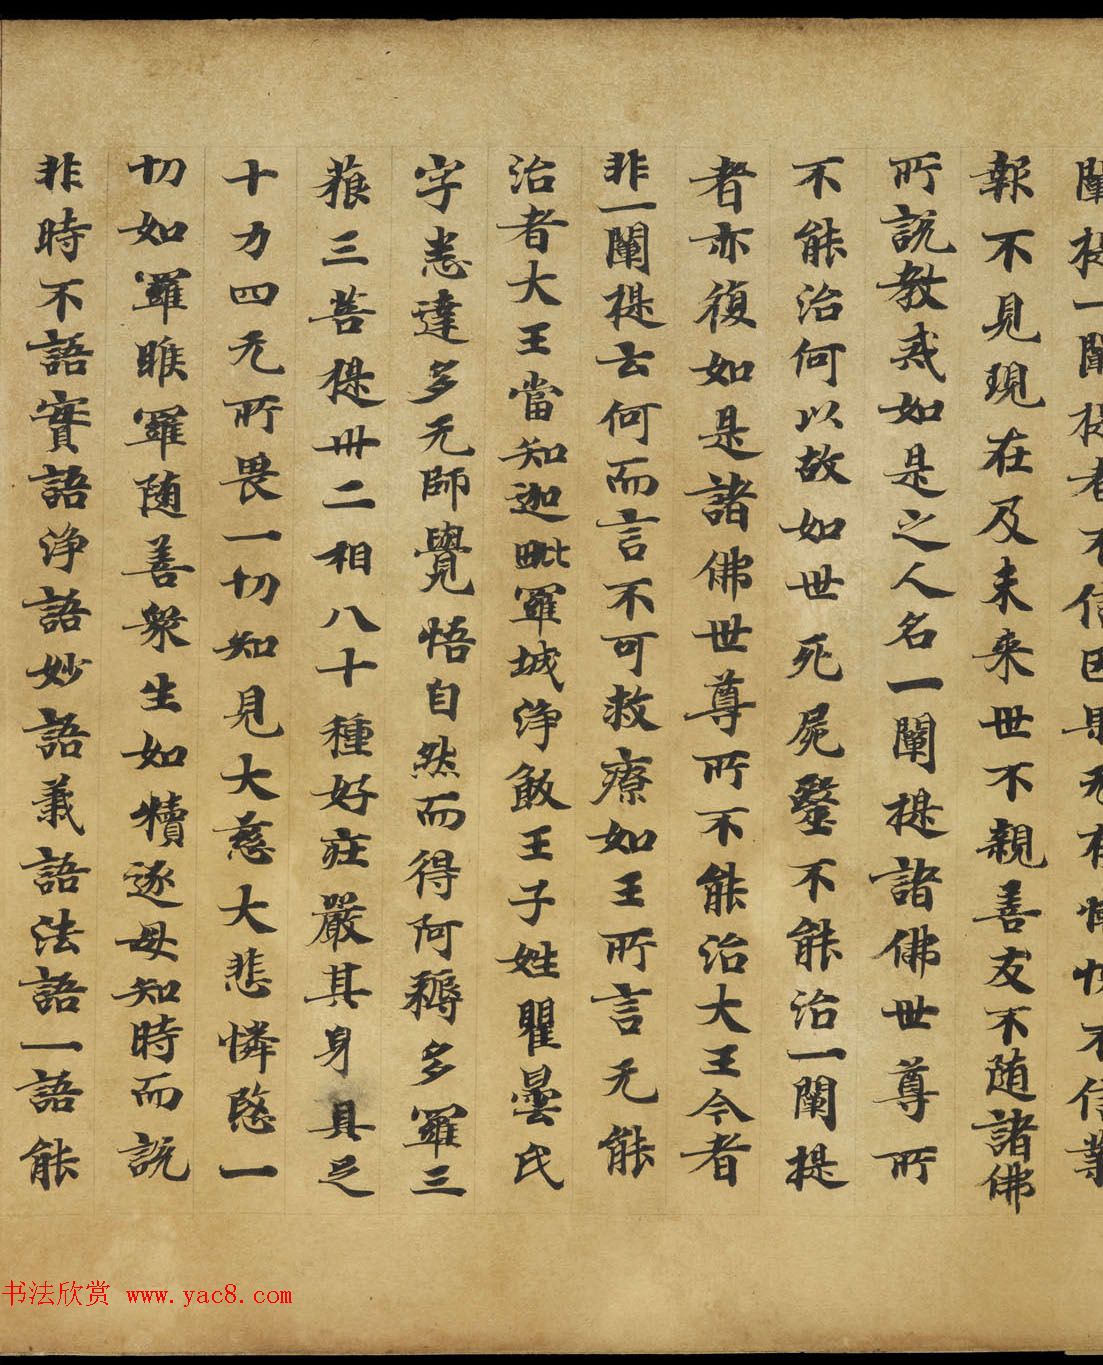 闡提一闡提者不信因果无有慚愧不信業
報不見現在及未來世不親善友不随諸佛
所說教戒如是之人名一闡提諸佛世尊所
不能治何以故如世死屍毉不能治一闡提
者亦復如是諸佛世尊所不能治大王今者
非一闡提云何而言不可救療如王所言无能
治者大王當知迦毗羅城淨飯王子姓瞿曇氏
字悉達多无師覺悟自然而得阿耨多羅三
藐三菩提卅二相八十種好莊嚴其身具足
十力四无所畏一切知見大慈大悲憐愍一
切如羅睺羅随善衆生如犢逐母知時而説
非時不語實語淨語妙語義語法語一語能
书法欣赏 www.yac8.com